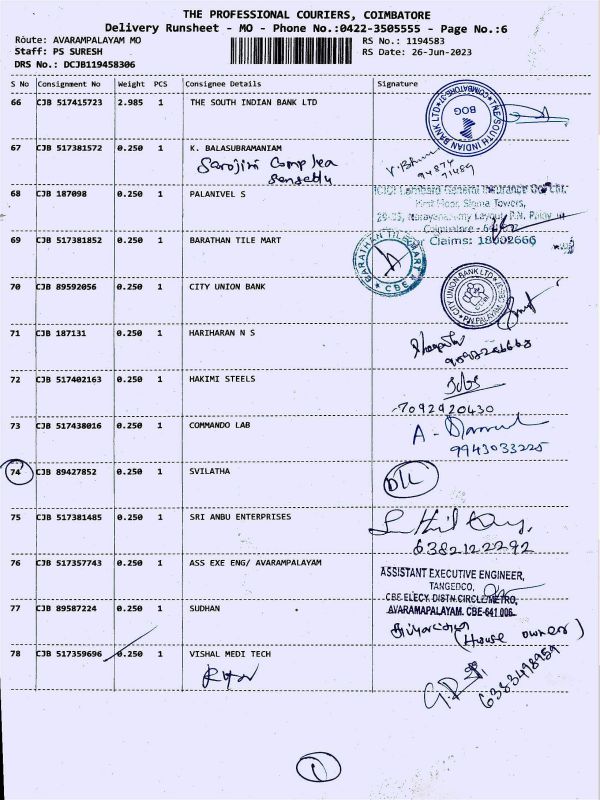 THE PROFESSIONAL COURIERS, COIMBATORE
Delivery Runsheet - MO - Phone No.:0422-3505555 - Page No.:6
Route: AVARAMPALAYAM MO
Staff: PS SURESH
DRS No.: DCJB119458306
RS No.: 1194583
RS Date: 26-Jun-2023
S No Consignment No Weight PCS Consignee Details Signature
66 CJB 517415723 2.985 1 THE SOUTH INDIAN BANK LTD
THE SOUTH INDIAN BANK LTD
BOG
67 CJB 517381572 0.250 1 K. BALASUBRAMANIAM
Sarojini Complex
94874
71489
68 CJB 187098 0.250 1 PALANIVEL S
ICICI Lombard General Insurance Co. Ltd.
First Floor, Sigma Towers,
Coimbatore
For Claims: 18002666
69 CJB 517381852 0.250 1 BARATHAN TILE MART
BARATHAN TILE MART
CBE
70 CJB 89592056 0.250 1 CITY UNION BANK
CITY UNION BANK LTD
P.N.PALAYAM
71 CJB 187131 0.250 1 HARIHARAN N S
72 CJB 517402163 0.250 1 HAKIMI STEELS
7092920430
73 CJB 517438016 0.250 1 COMMANDO LAB
9943033225
74 CJB 89427852 0.250 1 SVILATHA
75 CJB 517381485 0.250 1 SRI ANBU ENTERPRISES
6382122292
76 CJB 517357743 0.250 1 ASS EXE ENG/ AVARAMPALAYAM
ASSISTANT EXECUTIVE ENGINEER,
TANGEDCO,
CBE ELECY. DISTN.CIRCLE/METRO,
AVARAMAPALAYAM. CBE-641 006.
77 CJB 89587224 0.250 1 SUDHAN
(House owner)
78 CJB 517359696 0.250 1 VISHAL MEDI TECH
6383498959
1